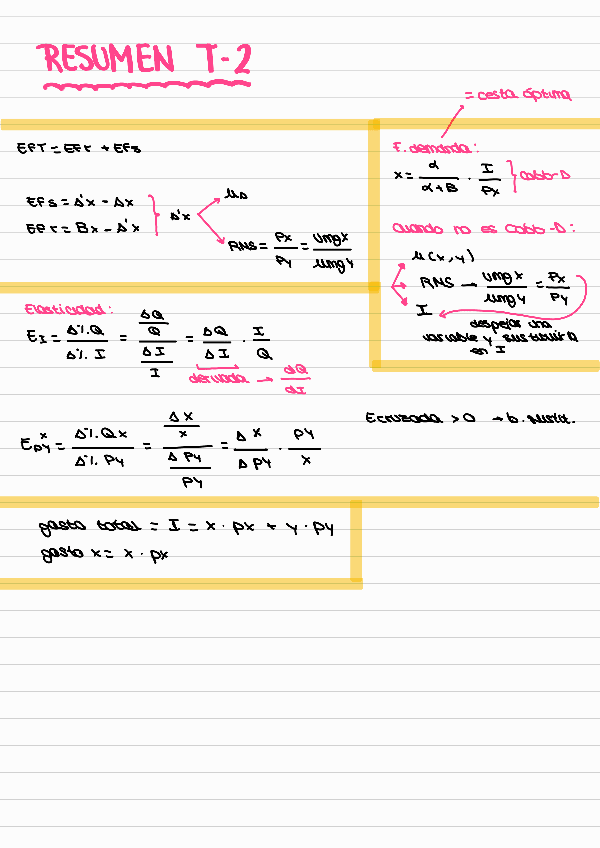 RESUMEN T-2
EFT = EFr + EFs
EFs = A'x - Ax
EFr = Bx - A'x
A'x
μA
RMS = Px/Py = Umgx/Umgy
= cesta óptima
F. demanda:
x = α/(α+B) · I/Px } Cobb-D
Cuando no es Cobb-D:
μ(x,y)
RMS → Umgx/Umgy = Px/Py
I
despejar una
variable y sustituirla
en I
Elasticidad:
EI = Δ%Q/Δ%I = (ΔQ/Q)/(ΔI/I) = ΔQ/ΔI · I/Q
derivada → dQ/dI
E^x_Py = Δ%Qx/Δ%Py = (Δx/x)/(ΔPy/Py) = Δx/ΔPy · Py/x
Ecruzada > 0 → b. sustit.
gasto total = I = x · px + y · py
gasto x = x · px